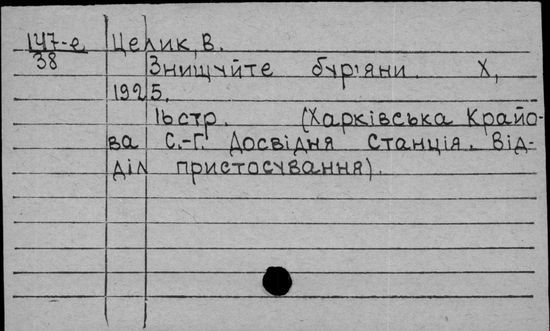 147-е Целик, В.
38
Знищуйте бур'яни. Х,
1925.
16стр. (Харківська Крайо-
ва С.-Г. Досвідня Станція. Від-
діл пристосування).